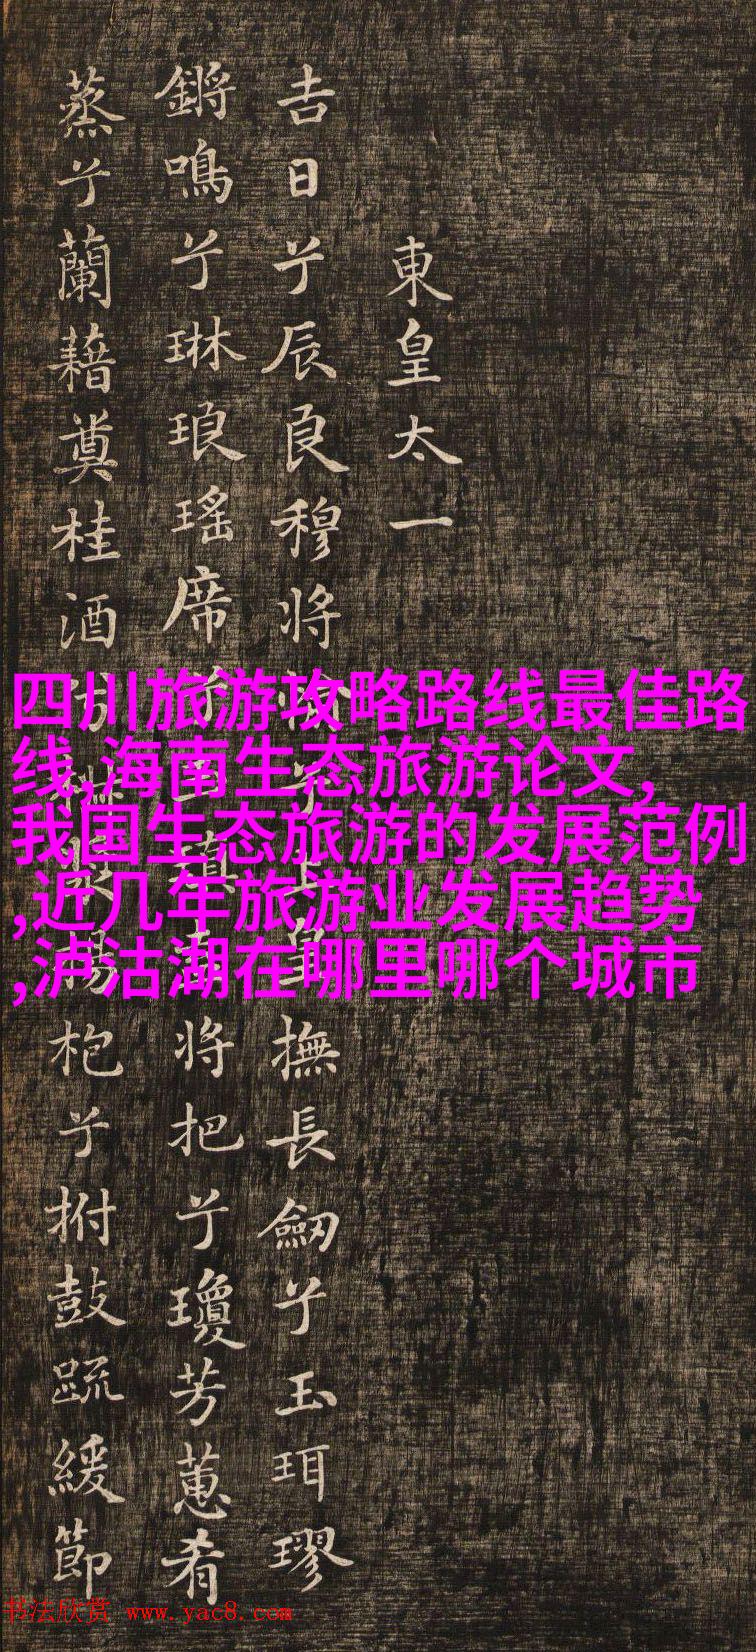 東皇太一
吉日兮辰良穆將兮上皇撫長劒兮玉珥璆
鏘鳴兮琳琅瑤席兮瑱將把兮瓊芳蕙肴
蒸兮蘭藉奠桂酒揚枹兮拊鼓疏緩節
四川旅游攻略路线最佳路
线,海南生态旅游论文,
我国生态旅游的发展范例
,近几年旅游业发展趋势
,泸沽湖在哪里哪个城市
书法欣赏 www.yac8.com